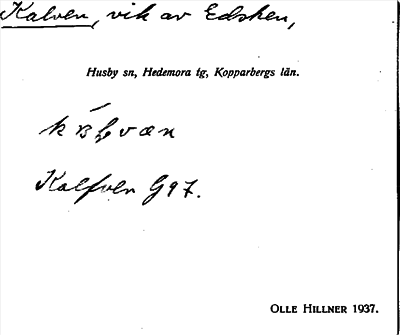 Kalven, vik av Edsken,
Husby sn, Hedemora tg, Kopparbergs län.
Kalfven G97.
OLLE HILLNER 1937.